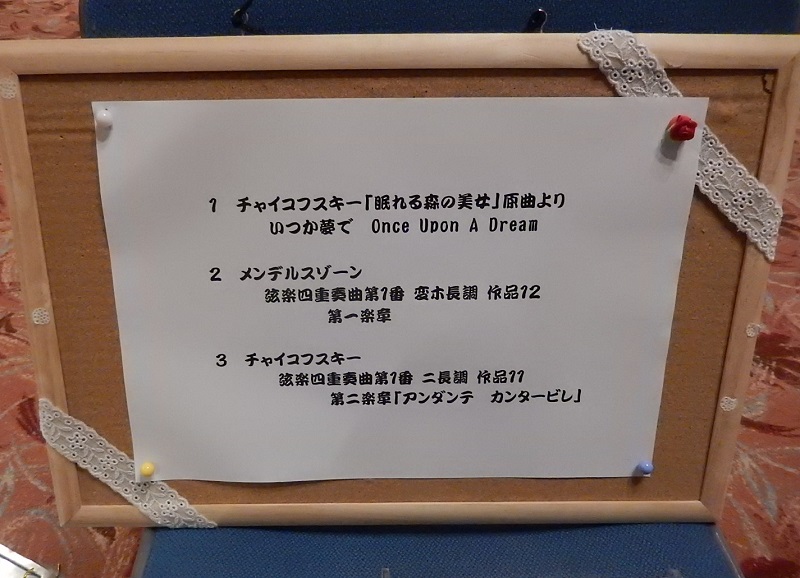 1 チャイコフスキー「眠れる森の美女」原曲より
いつか夢で Once Upon A Dream
2 メンデルスゾーン
弦楽四重奏曲第1番 変ホ長調 作品12
第一楽章
3 チャイコフスキー
弦楽四重奏曲第1番 ニ長調 作品11
第二楽章「アンダンテ カンタービレ」